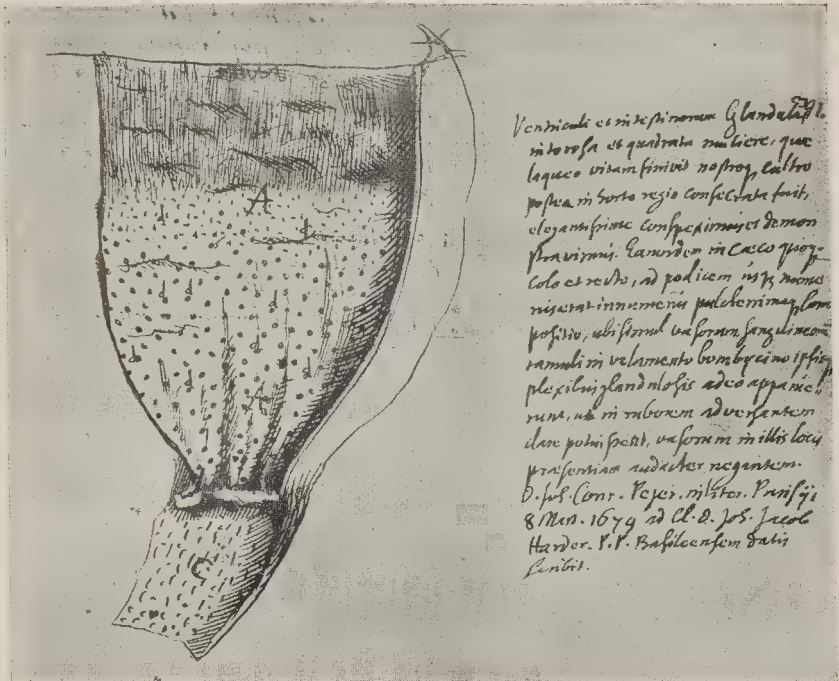 Ventriculi et intestinorum Glandulas
in torosa et quadrata muliere, quæ
laqueo vitam finivit nostroq cultro
postea in horto regio consecrata fuit,
elegantissime conspeximus et demon
stravimus. Earundem in Cæco quoq
colo et recto, ad podicem usq nume
rus erat innumerus pulcherrimaq
positio, ubi simul vasorum sanguineorum
ramuli in velamento bombycino ipsisq
plexibus glandulosis adeo apparue
runt, ut in ruborem adversantem
dare potuissent, vasorum in illis locis
præsentiam audacter negantem.
D. Joh. Conr. Pejer. in liter. Parisijs
8 Mart. 1679 ad Cl. D. Joh. Jacob
Harder. P.P. Basileensem datis
scribit.
A
C